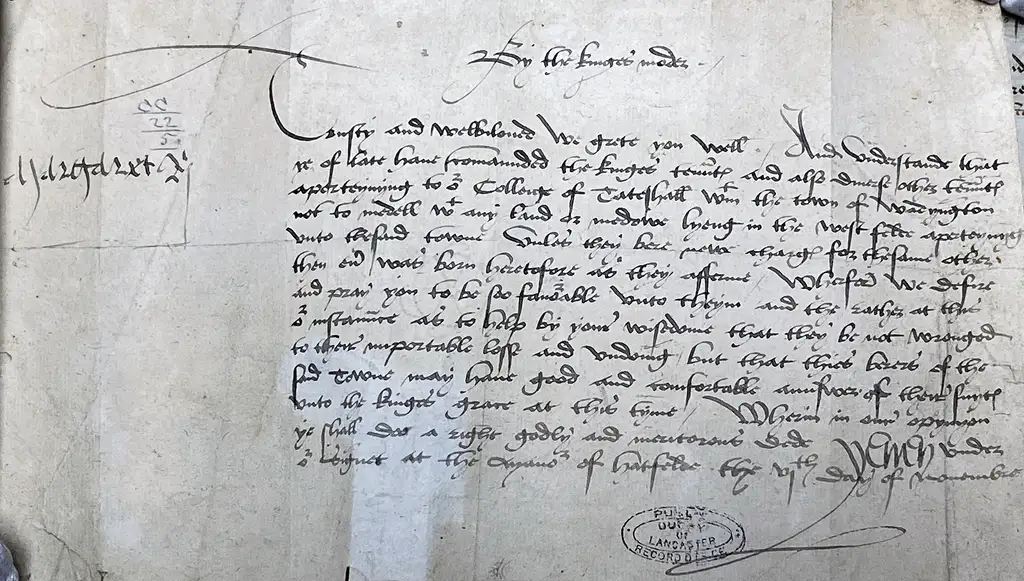 By the kinges moder
CC
22
5
Trusty and welbiloved We grete you well And Understande that
ye of late have comaunded the kinges tennts and also diverse other tennts
aperteynyng to or College of Tateshall wtin the town of Wadyngton
not to medell wt any land or medowe lyeng in the west felde aperteynyng
unto thesaid towne Unles they bere newe charges for thesame other
then ev was born heretofore as they afferme Wherfor we desire
and pray you to be soo favorable unto theym and the rather at this
or instaunce as to help by your wisedome that they be not wronged
to their importable losse and undoing but that thies berers of the
said Towne may have good and comfortable aunswer of their suyts
unto the kinges grace at this tyme Wherin in our opynyon
ye shall doo a right godly and meritorous Dede Under
or signet at the Manor of hatfelde the vjth Day of Novembre
PUBLIC
DUCHY
OF
LANCASTER
RECORD OFFICE